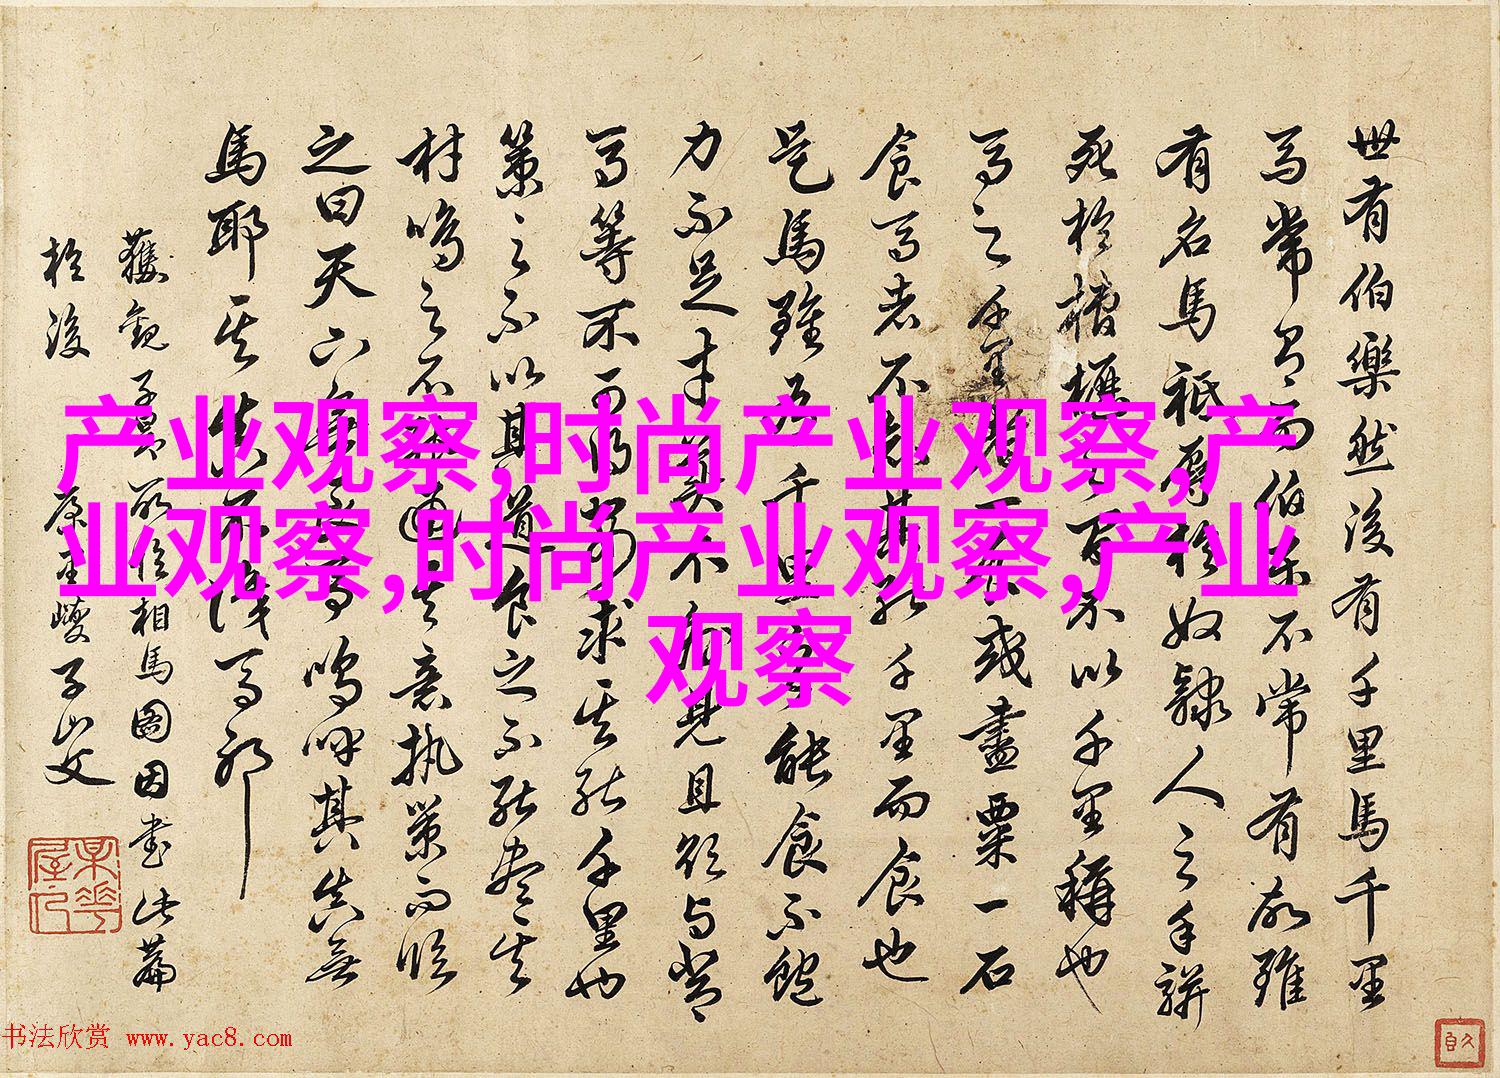 世有伯樂然後有千里馬千里
馬常有而伯樂不常有故雖
有名馬祇辱於奴隸人之手駢
死於槽櫪之間不以千里稱也
馬之千里者一食或盡粟一石
食馬者不知其能千里而食也
是馬雖有千里之能食不飽
力不足才美不外見且欲與常
馬等不可得安求其能千里也
策之不以其道食之不能盡其
材鳴之不能通其意執策而臨
之曰天下無良馬嗚呼其真無
馬耶其真不識馬耶
獲觀子昂所臨相馬圖因書此篇
於後 康里巎子山父
产业观察,时尚产业观察,产
业观察,时尚产业观察,产业
观察
书法欣赏 www.yac8.com